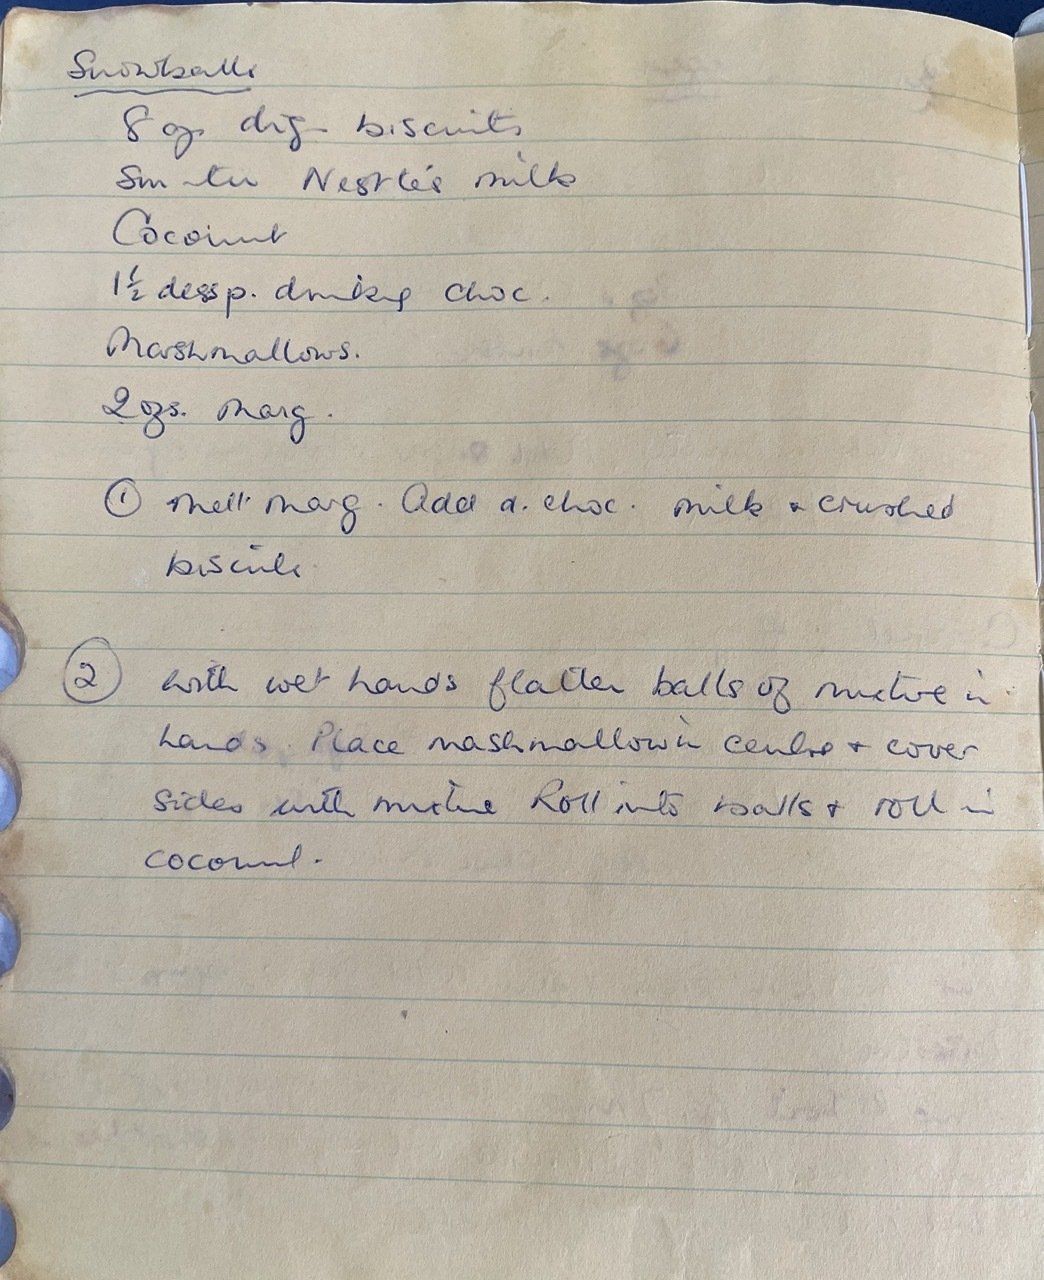 Snowballs
8 oz. dig. biscuits
Sm tin Nestle's milk
Coconut
1½ dessp. drinking choc.
Marshmallows.
2 ozs. marg.
① Melt marg. Add d. choc. milk & crushed
biscuits
② With wet hands flatten balls of mixture in
hands. Place mashmallow in centre + cover
sides with mixture Roll into balls + roll in
coconut.